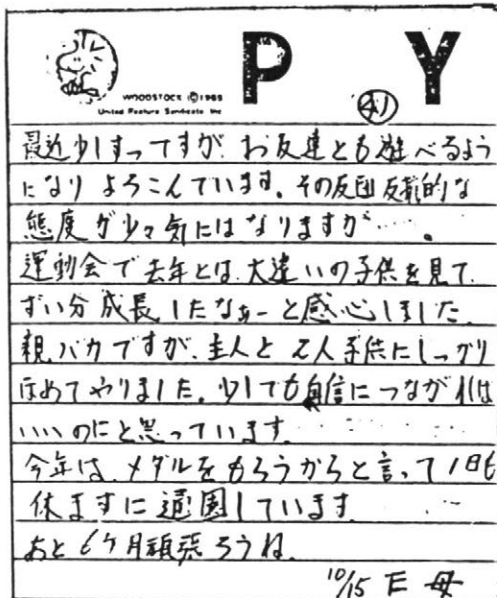 WOODSTOCK ©1965
United Feature Syndicate Inc
P Y
41
最近少しずつですが、お友達とも遊べるよう
になり よろこんでいます。その反面 反抗的な
態度が少々気にはなりますが……。
運動会で去年とは、大違いの子供を見て
ずい分成長したなぁーと感心しました。
親バカですが、主人と2人子供にしっかり
ほめてやりました。少しでも自信につながれば
いいのにと思っています。
今年は、メダルをもらうからと言って1日も
休まずに通園しています。
あと6ヶ月頑張ろうね。
10/15 E 母